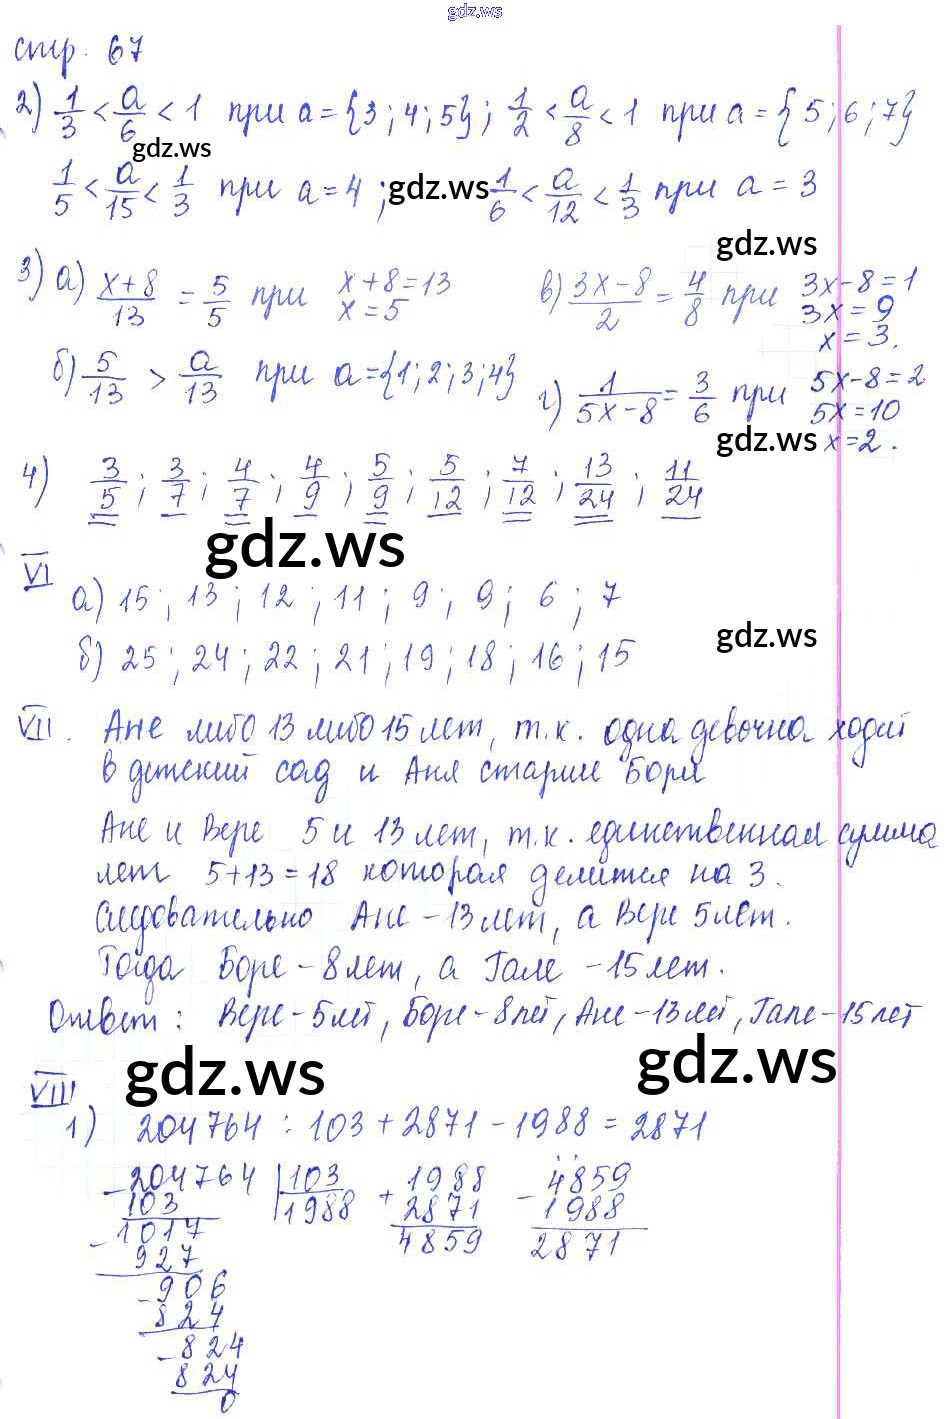 gdz.ws
стр. 67
2) 1/3 < a/6 < 1 при a = {3; 4; 5}; 1/2 < a/8 < 1 при a = {5; 6; 7}
gdz.ws
1/5 < a/15 < 1/3 при a = 4; gdz.ws 1/6 < a/12 < 1/3 при a = 3
gdz.ws
3) а) x+8/13 = 5/5 при x+8=13
x=5
в) 3x-8/2 = 4/8 при 3x-8=1
3x=9
x=3.
б) 5/13 > a/13 при a={1; 2; 3; 4}
г) 1/5x-8 = 3/6 при 5x-8=2
5x=10
gdz.ws x=2.
4) 3/5; 3/7; 4/7; 4/9; 5/9; 5/12; 7/12; 13/24; 11/24
gdz.ws
VI
а) 15; 13; 12; 11; 9; 9; 6; 7
gdz.ws
б) 25; 24; 22; 21; 19; 18; 16; 15
VII. Ане либо 13 либо 15 лет, т.к. одна девочка ходит
в детский сад и Аня старше Бори
Ане и Вере 5 и 13 лет, т.к. единственная сумма
лет 5+13=18 которая делится на 3.
Следовательно Ане - 13 лет, а Вере 5 лет.
Тогда Боре - 8 лет, а Гале - 15 лет.
Ответ: Вере - 5 лет, Боре - 8 лет, Ане - 13 лет, Гале - 15 лет
gdz.ws gdz.ws
VIII
1) 204764 : 103 + 2871 - 1988 = 2871
-204764 | 103 + 1988 - 4859
103 1988 2871 1988
-1017 4859 2871
927
-906
824
-824
824
0